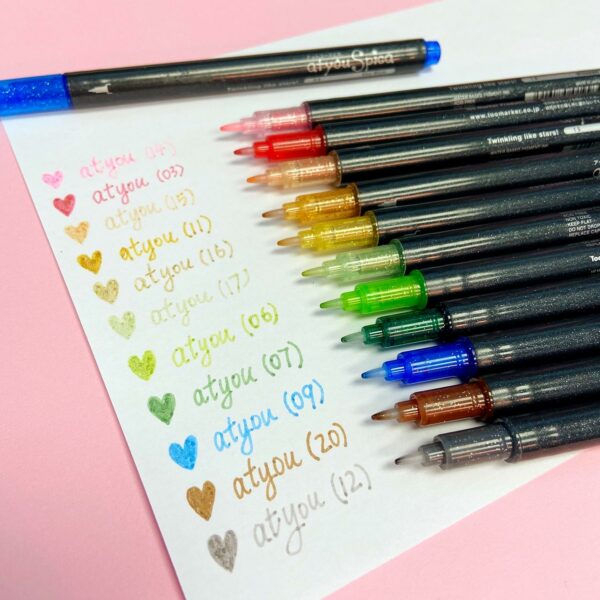 atyou Spica
Twinkling like stars!
www.toomarker.co.jp
Twinkling like stars!
NON TOXIC
KEEP FLAT
DO NOT DROP
REPLACE CAP
Too
atyou
atyou (03)
atyou (15)
atyou (11)
atyou (16)
atyou (17)
atyou (06)
atyou (07)
atyou (09)
atyou (20)
atyou (12)